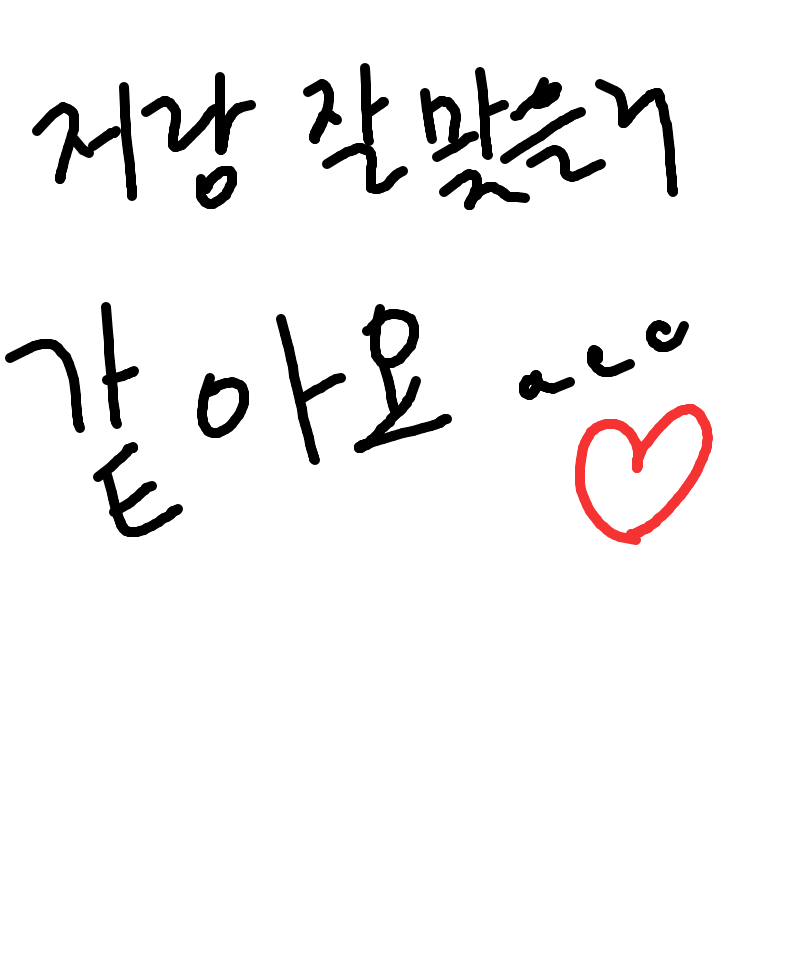 저랑 잘 맞을거
같아요...